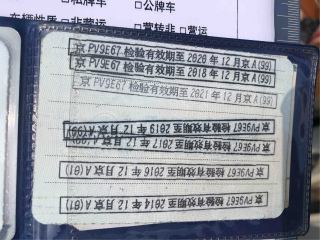 □私牌车 □公牌车
车辆性质 □非营运 □营转非 □营运
京PV9E67检验有效期至2020年12月京A(99)
京PV9E67检验有效期至2018年12月京A(99)
京PV9E67检验有效期至2021年12月京A(99)
京PV9E67检验有效期至2019年12月京A(99)
京PV9E67检验有效期至2017年12月京A
京PV9E67检验有效期至2016年12月京A(01)
京PV9E67检验有效期至2014年12月京A(01)